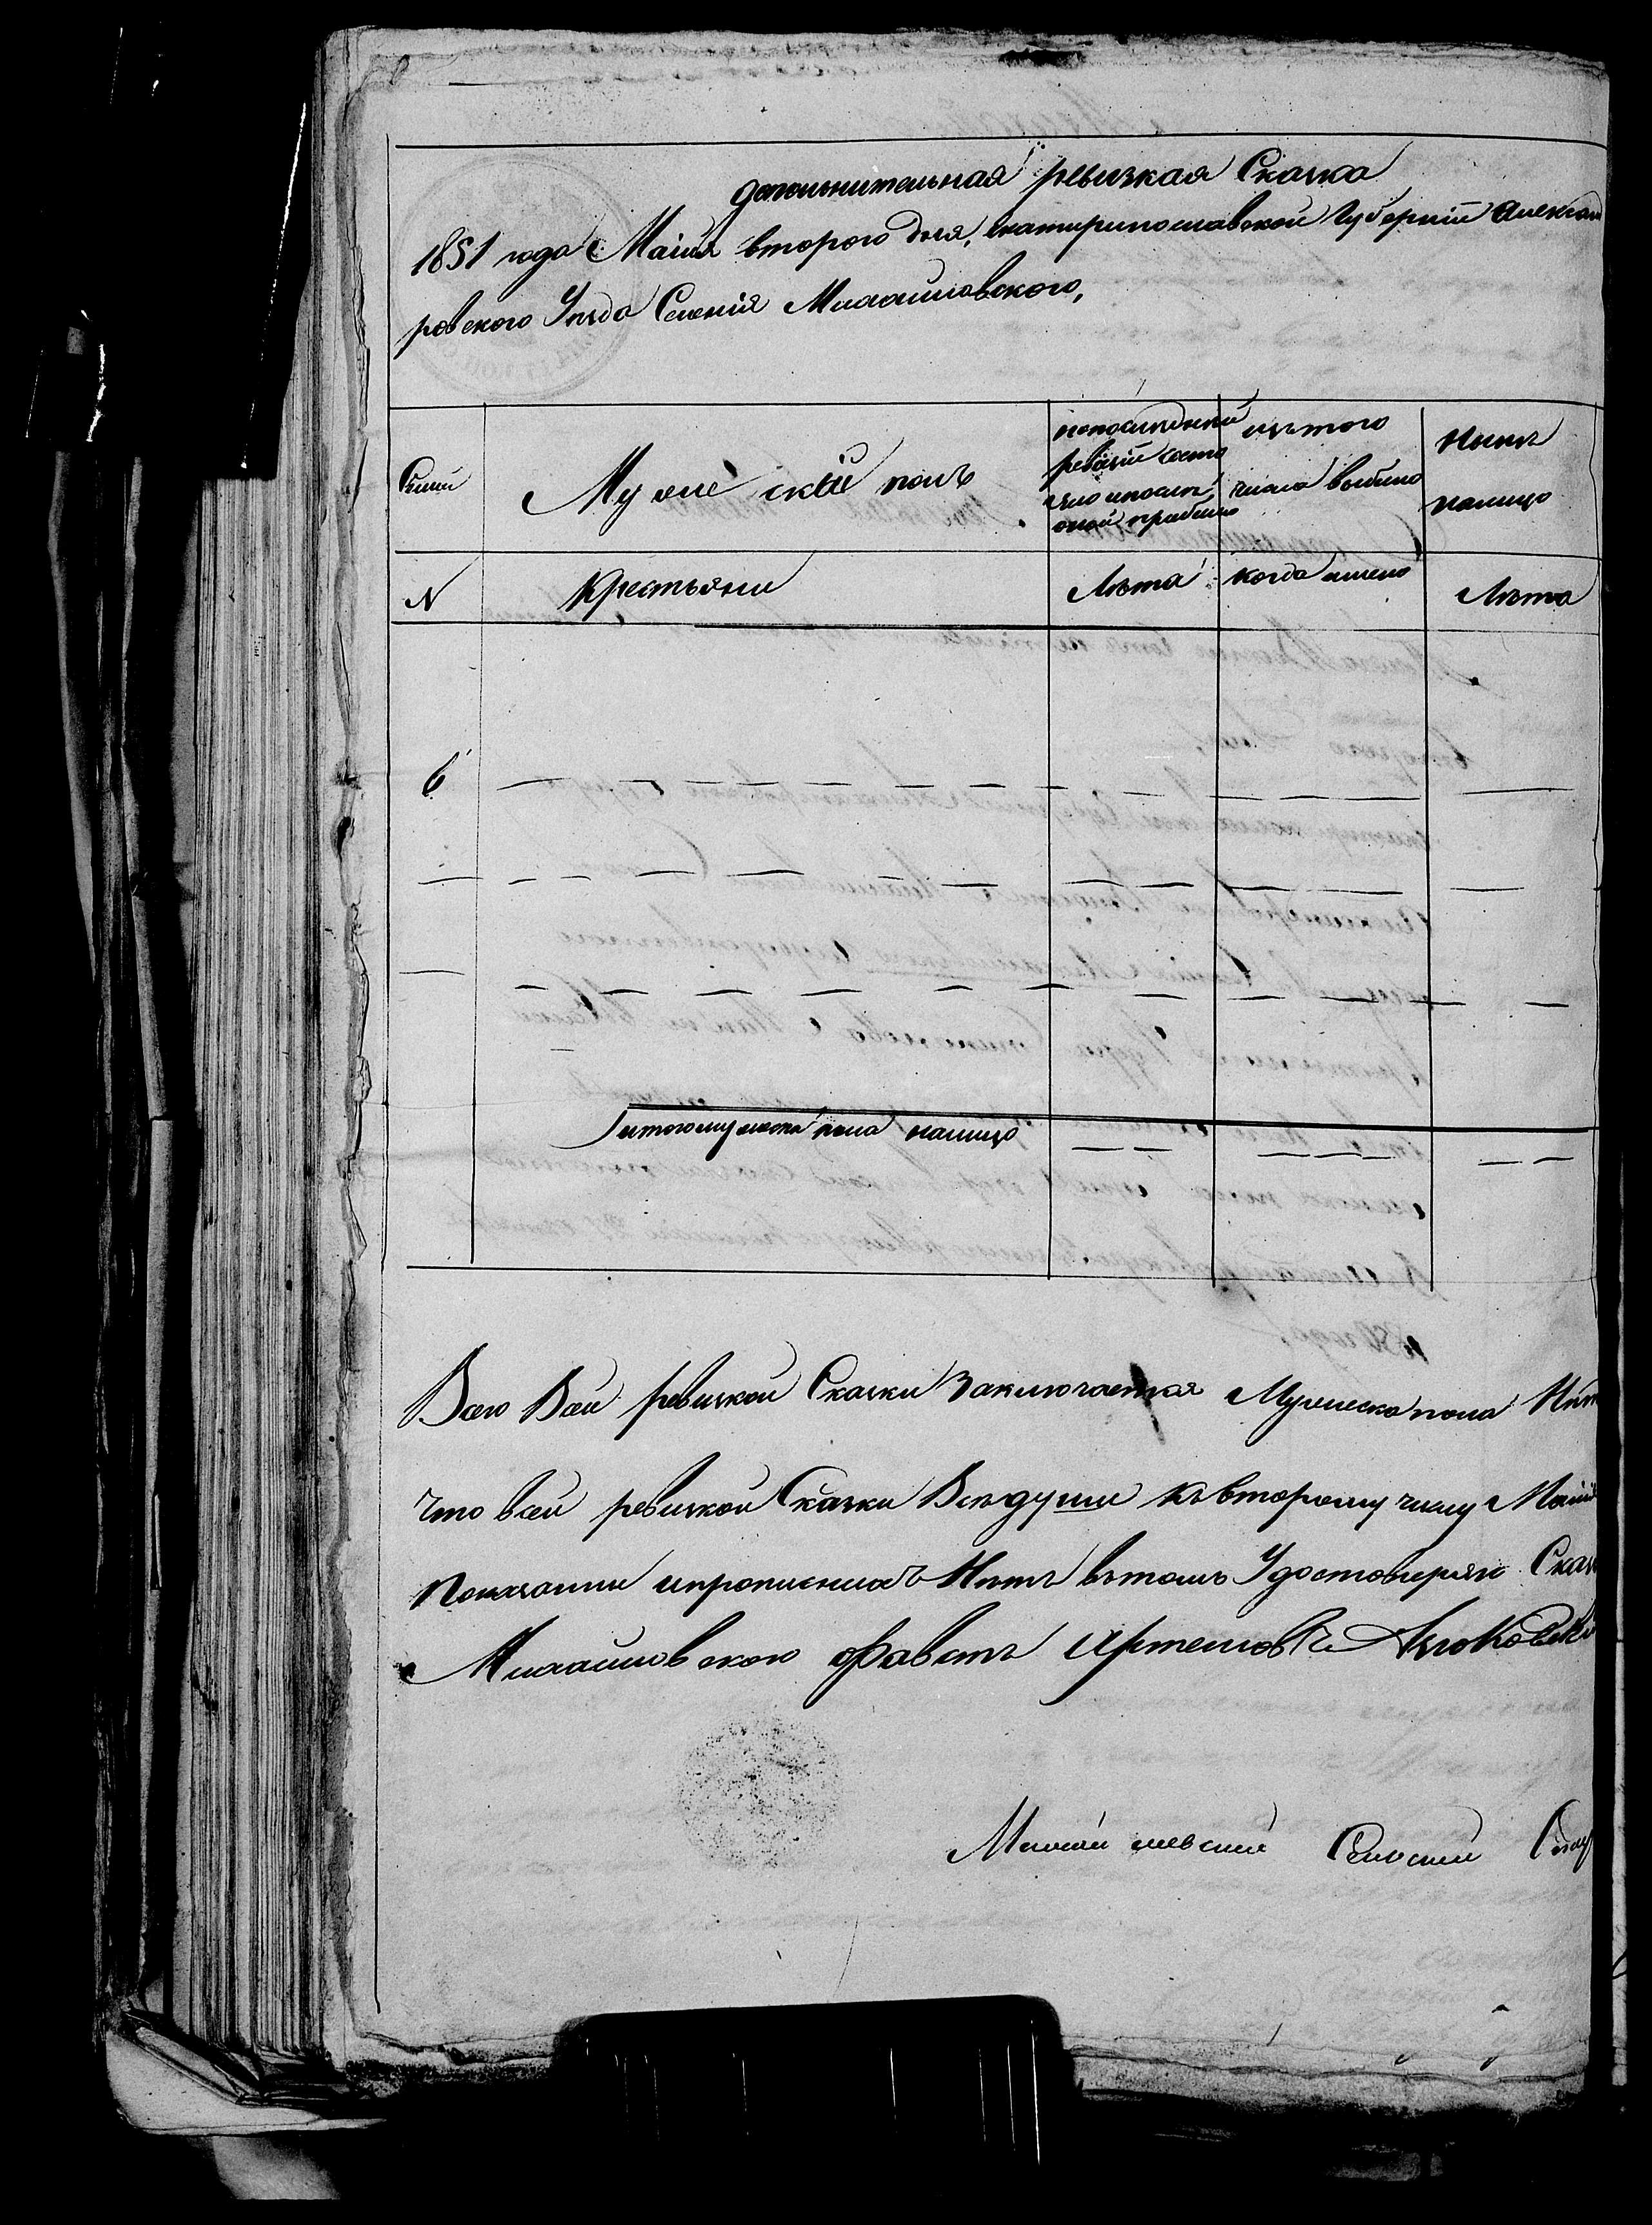 дополнительная ревизкая Сказка
1851 года Маиія второго дня, екатиринославской Губерніи Алексан
ровского Уезда Селенія Михайловского,
Семи
Мужескій полъ
попоследней
ревизіи состо
яло ипосле
оной прибыло
изътого
числа выбыло
Ныне
налицо
N
Крестьяни
Лета
когда имено
Лета
6
итого мужеска пола налицо
Всего Всей ревизкой Сказки Заключается Мужеска пола Нет
что всей ревизкой Сказки Вседуши къвторому числу Маиія
показанни ипрописнихъ Нетъ вътомъ Удостоверяю Сказ
Михайловского
Сельский